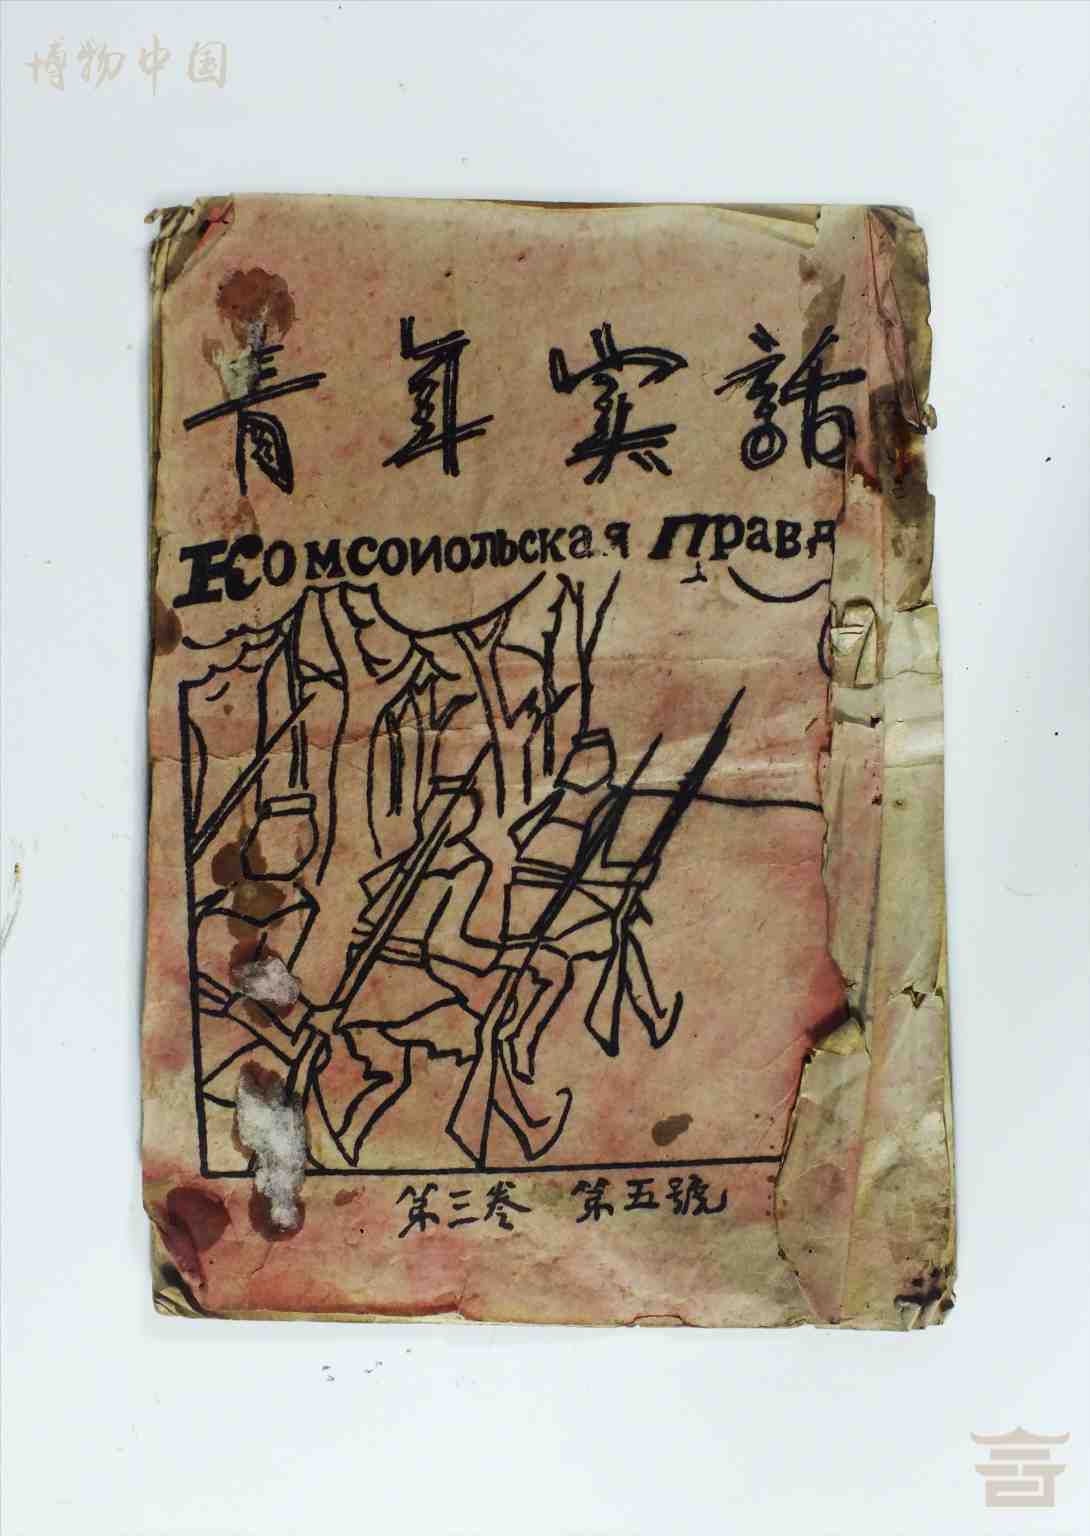 博物中国
青年实話
Комсоиольская Правд
第三卷 第五號